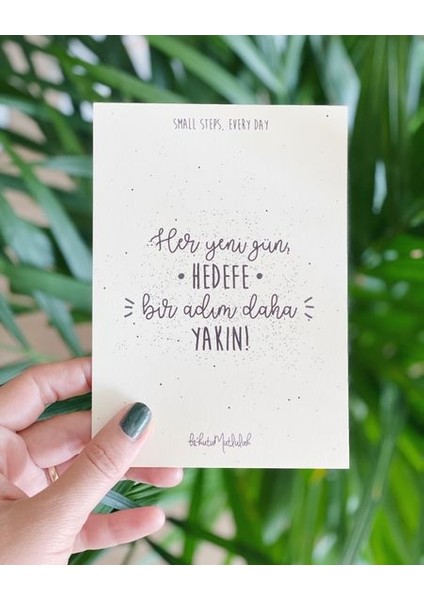 SMALL STEPS, EVERY DAY
Her yeni gün,
• HEDEFE •
bir adım daha
YAKIN!
Bi'kutuMutluluk